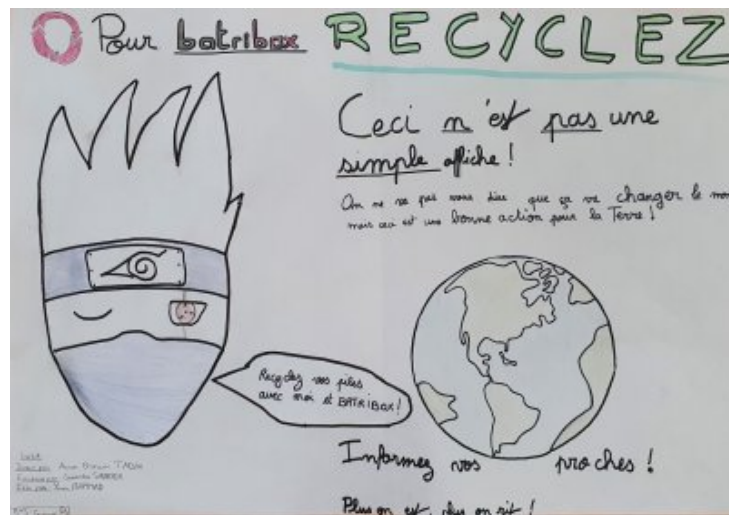 Pour batribox RECYCLEZ
Ceci n'est pas une
simple affiche !
On ne va pas vous dire que ça va changer le
mais ceci est une bonne action pour la Terre !
Recyclez vos piles
avec moi et BATRIBOX !
Informez vos proches !
Plus on est, plus on rit !